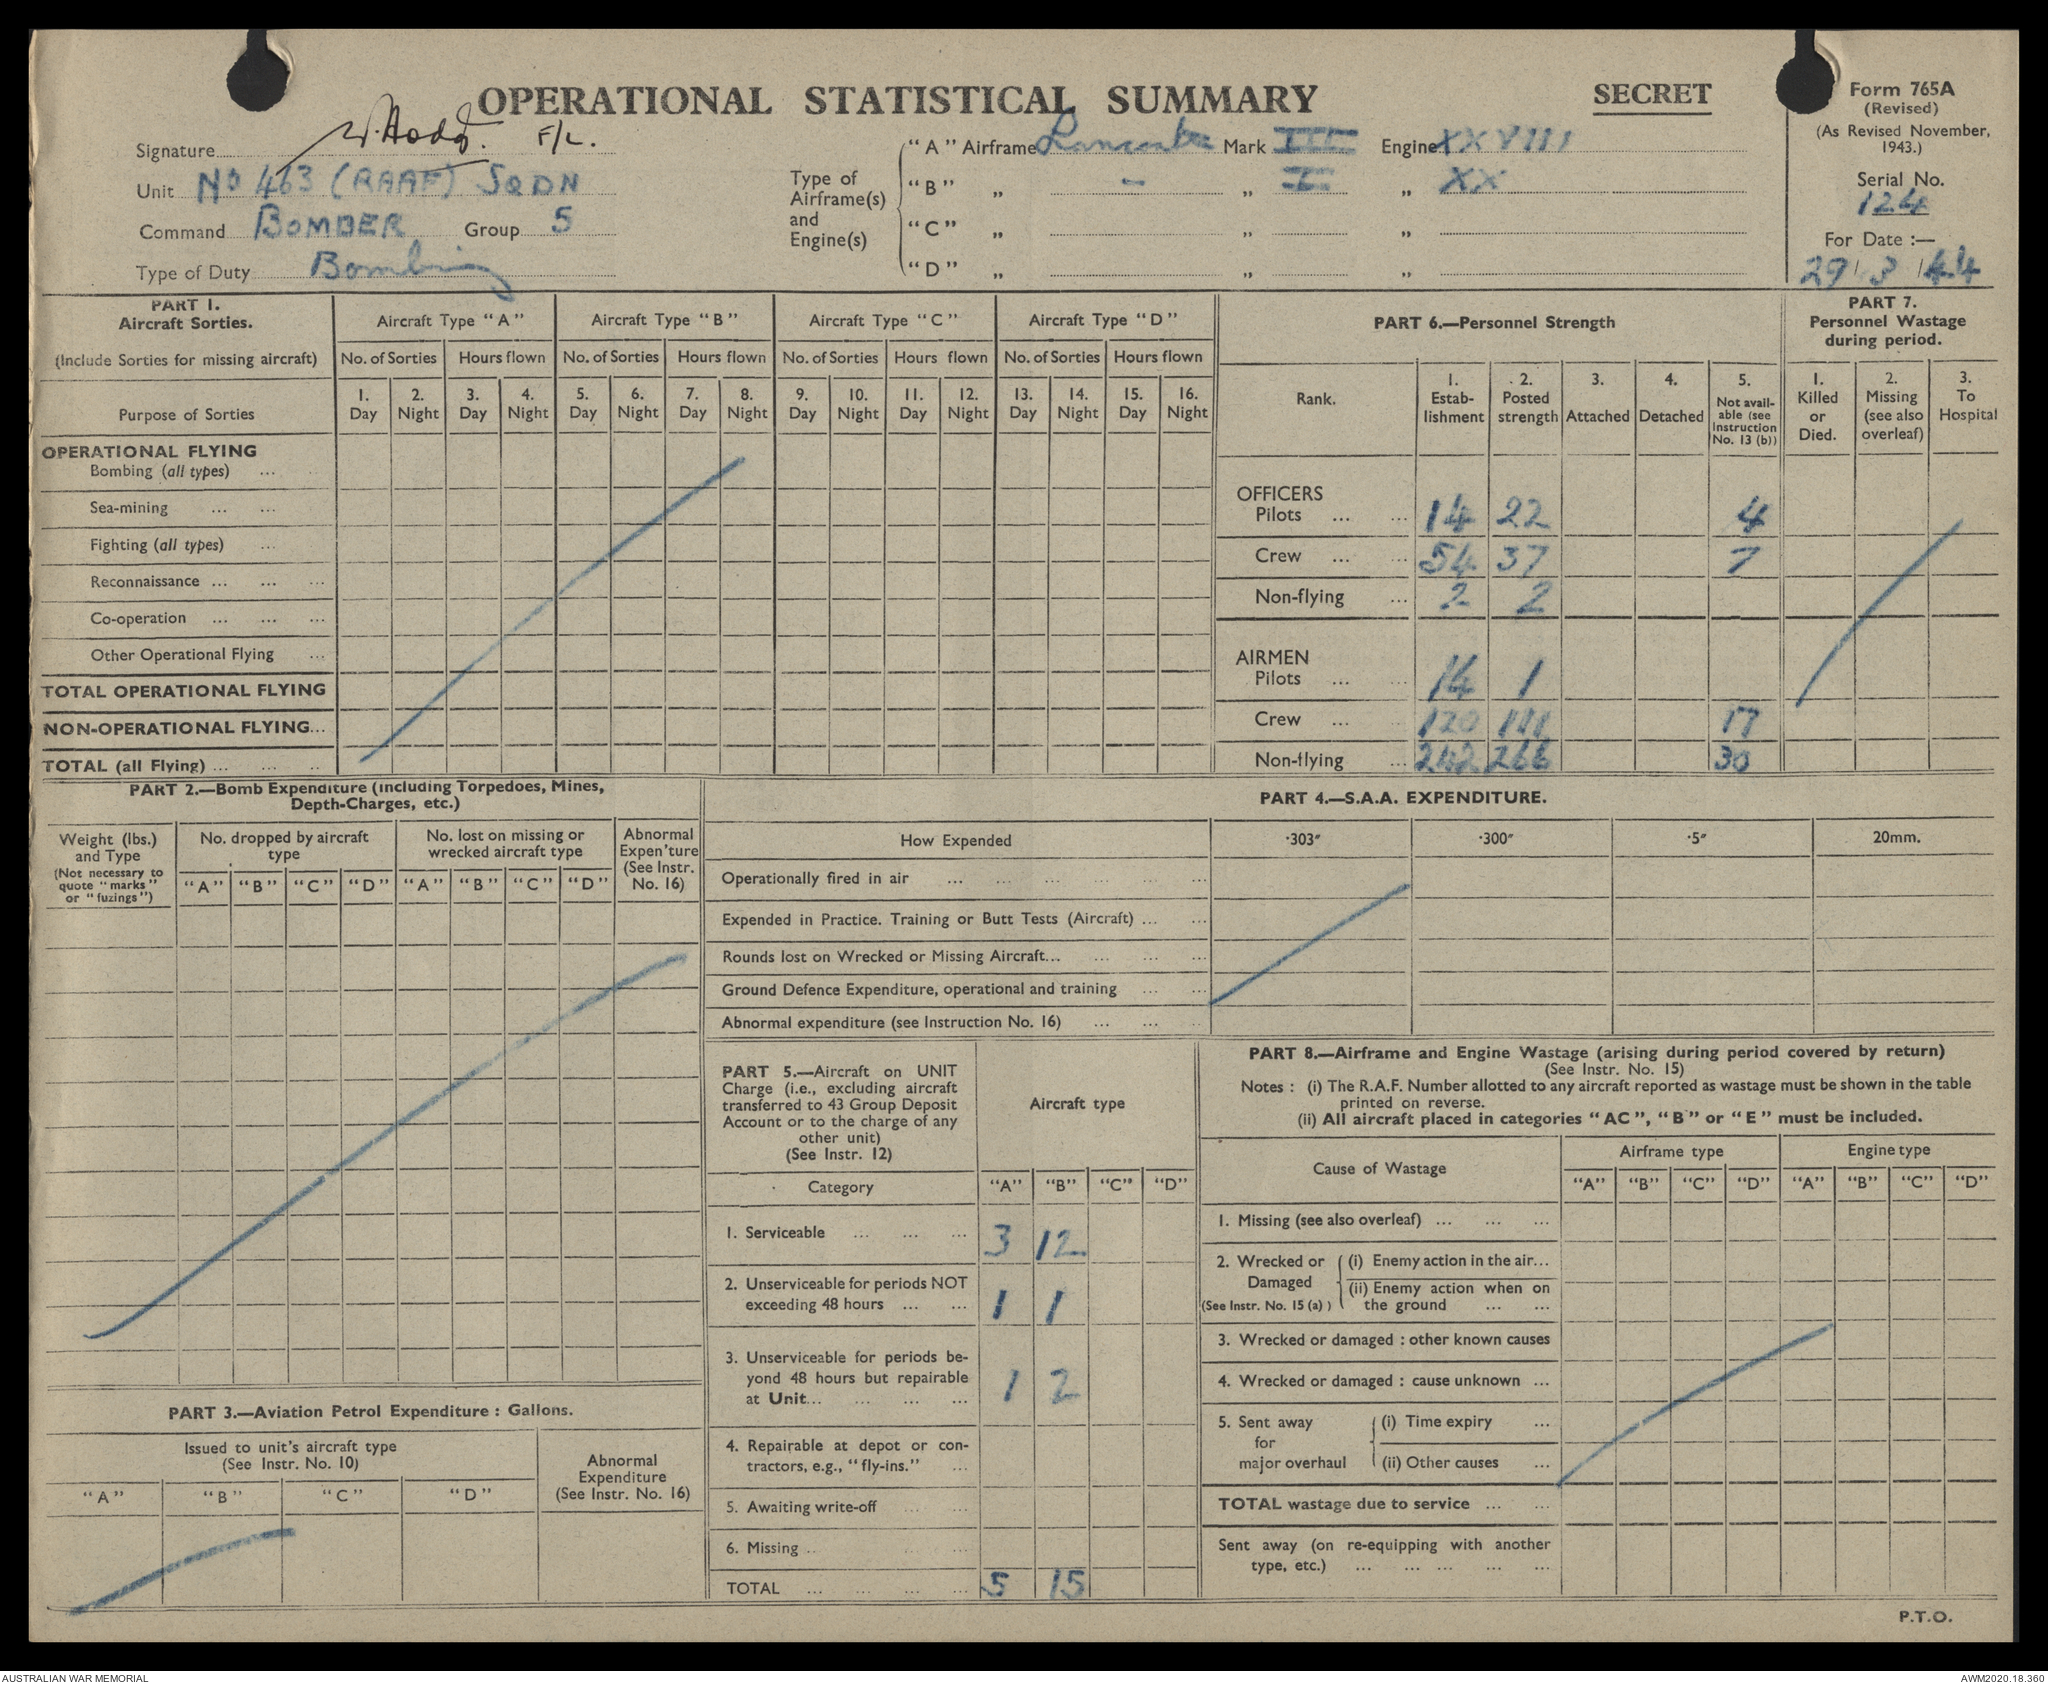 OPERATIONAL STATISTICAL SUMMARY
SECRET
Form 765A
(Revised)
(As Revised November, 1943.)
Serial No.
124
For Date :—
29/3/44
Signature F/L.
Unit No 463 (RAAF) SQDN
Command BOMBER Group 5
Type of Duty Bombing
Type of Airframe(s) and Engine(s)
"A" Airframe Lancaster Mark III Engine XXVIII
"B" „ - „ I „ XX
"C" „ „ „
"D" „ „ „
PART 1.
Aircraft Sorties.
(Include Sorties for missing aircraft)
Purpose of Sorties
Aircraft Type "A" Aircraft Type "B" Aircraft Type "C" Aircraft Type "D"
No. of Sorties Hours flown No. of Sorties Hours flown No. of Sorties Hours flown No. of Sorties Hours flown
1. Day 2. Night 3. Day 4. Night 5. Day 6. Night 7. Day 8. Night 9. Day 10. Night 11. Day 12. Night 13. Day 14. Night 15. Day 16. Night
OPERATIONAL FLYING
Bombing (all types) ...
Sea-mining ... ...
Fighting (all types) ...
Reconnaissance ... ... ...
Co-operation ... ... ...
Other Operational Flying ...
TOTAL OPERATIONAL FLYING
NON-OPERATIONAL FLYING...
TOTAL (all Flying) ... ... ...
PART 6.—Personnel Strength
Rank.
1. Establishment
2. Posted strength
3. Attached
4. Detached
5. Not available (see Instruction No. 13 (b))
OFFICERS
Pilots ... ... 14 22 4
Crew ... ... 54 37 7
Non-flying ... 2 2
AIRMEN
Pilots ... ... 14 1
Crew ... ... 120 111 17
Non-flying ... 242 266 30
PART 7.
Personnel Wastage during period.
1. Killed or Died.
2. Missing (see also overleaf)
3. To Hospital
PART 2.—Bomb Expenditure (including Torpedoes, Mines,
Depth-Charges, etc.)
Weight (lbs.) and Type
(Not necessary to quote "marks" or "fuzings")
No. dropped by aircraft type
No. lost on missing or wrecked aircraft type
Abnormal Expen'ture (See Instr. No. 16)
"A" "B" "C" "D" "A" "B" "C" "D"
PART 4.—S.A.A. EXPENDITURE.
How Expended ·303″ ·300″ ·5″ 20mm.
Operationally fired in air ... ... ... ... ...
Expended in Practice. Training or Butt Tests (Aircraft) ... ...
Rounds lost on Wrecked or Missing Aircraft... ... ... ...
Ground Defence Expenditure, operational and training ... ...
Abnormal expenditure (see Instruction No. 16) ... ... ...
PART 3.—Aviation Petrol Expenditure : Gallons.
Issued to unit's aircraft type
(See Instr. No. 10)
Abnormal Expenditure (See Instr. No. 16)
"A" "B" "C" "D"
PART 5.—Aircraft on UNIT
Charge (i.e., excluding aircraft
transferred to 43 Group Deposit
Account or to the charge of any
other unit)
(See Instr. 12)
Aircraft type
Category "A" "B" "C" "D"
1. Serviceable ... ... ... 3 12
2. Unserviceable for periods NOT
exceeding 48 hours ... ... 1 1
3. Unserviceable for periods be-
yond 48 hours but repairable
at Unit... ... ... ... 1 2
4. Repairable at depot or con-
tractors, e.g., "fly-ins." ...
5. Awaiting write-off ... ...
6. Missing ... ... ...
TOTAL ... ... ... ... 5 15
PART 8.—Airframe and Engine Wastage (arising during period covered by return)
(See Instr. No. 15)
Notes : (i) The R.A.F. Number allotted to any aircraft reported as wastage must be shown in the table
printed on reverse.
(ii) All aircraft placed in categories "AC", "B" or "E" must be included.
Cause of Wastage
Airframe type Engine type
"A" "B" "C" "D" "A" "B" "C" "D"
1. Missing (see also overleaf) ... ... ...
2. Wrecked or Damaged
(See Instr. No. 15 (a))
(i) Enemy action in the air...
(ii) Enemy action when on
the ground ... ...
3. Wrecked or damaged : other known causes
4. Wrecked or damaged : cause unknown ...
5. Sent away for major overhaul
(i) Time expiry ...
(ii) Other causes ...
TOTAL wastage due to service ... ...
Sent away (on re-equipping with another
type, etc.) ... ... ... ... ...
P.T.O.
AUSTRALIAN WAR MEMORIAL
AWM2020.18.360